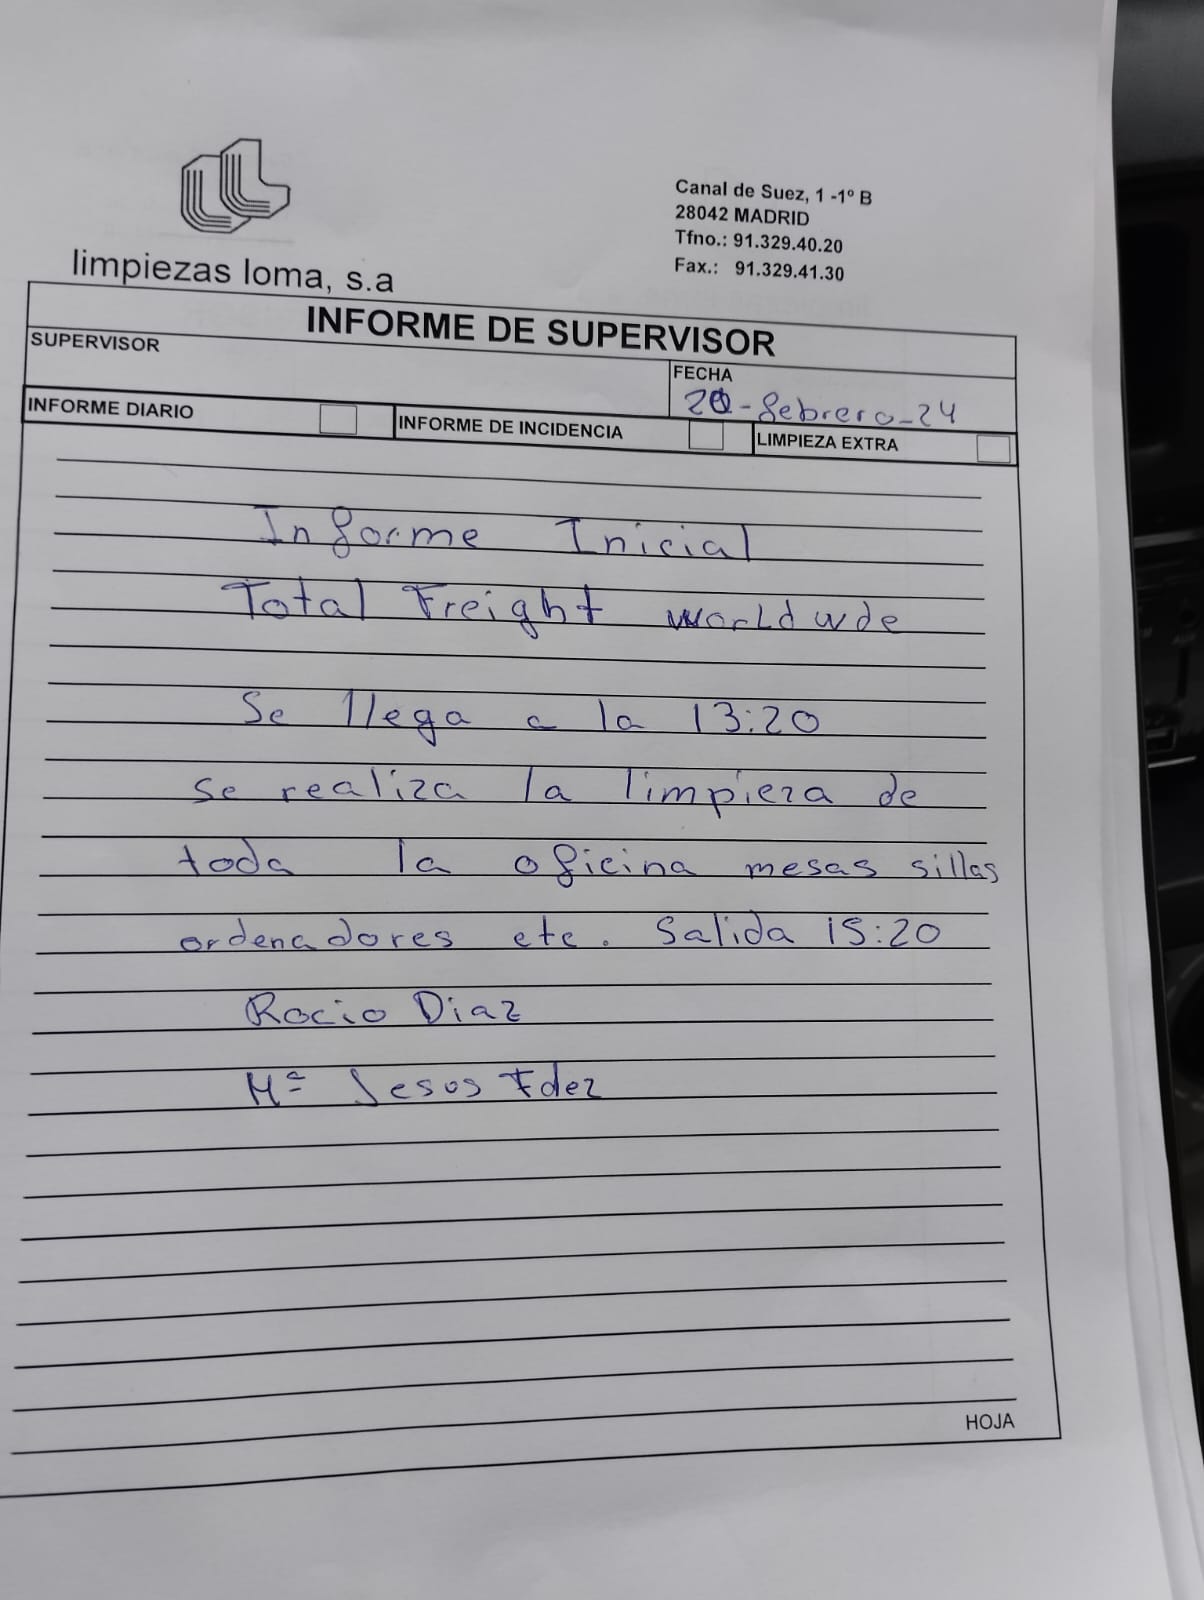 limpiezas loma, s.a
Canal de Suez, 1 -1º B
28042 MADRID
Tfno.: 91.329.40.20
Fax.: 91.329.41.30
INFORME DE SUPERVISOR
SUPERVISOR
FECHA
20-febrero-24
INFORME DIARIO
INFORME DE INCIDENCIA
LIMPIEZA EXTRA
Informe Inicial
Total Freight worldwde
Se llega a la 13:20
se realiza la limpieza de
toda la oficina mesas sillas
ordenadores etc. Salida 15:20
Rocio Diaz
Mª Jesus Fdez
HOJA